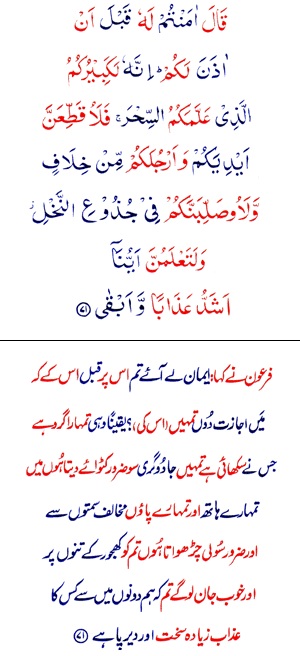 قَالَ اٰمَنْتُمْ لَهٗ قَبْلَ اَنْ
اٰذَنَ لَكُمْ ؕ اِنَّهٗ لَكَبِیْرُكُمُ
الَّذِیْ عَلَّمَكُمُ السِّحْرَ ۚ فَلَاُ قَطِّعَنَّ
اَیْدِیَكُمْ وَ اَرْجُلَكُمْ مِّنْ خِلَافٍ
وَّ لَاُوصَلِّبَنَّكُمْ فِیْ جُذُوْعِ النَّخْلِ ؗ
وَ لَتَعْلَمُنَّ اَیُّنَاۤ
اَشَدُّ عَذَابًا وَّ اَبْقٰی ﴿۷۱﴾
فرعون نے کہا: ایمان لے آئے تم اس پر قبل اس کے کہ
میں اجازت دُوں تمہیں (اس کی)؟ یقینًا وہی تمہارا گرو ہے
جس نے سکھائی ہے تمہیں جادُوگری سو ضرور کٹوائے دیتا ہُوں میں
تمہارے ہاتھ اور تمہارے پاؤں مخالف سمتوں سے
اور ضرور سُولی چڑھواتا ہُوں تم کو کھجور کے تنوں پر
اور خوب جان لو گے تم کہ ہم دونوں میں سے کس کا
عذاب زیادہ سخت اور دیرپا ہے ﴿۷۱﴾